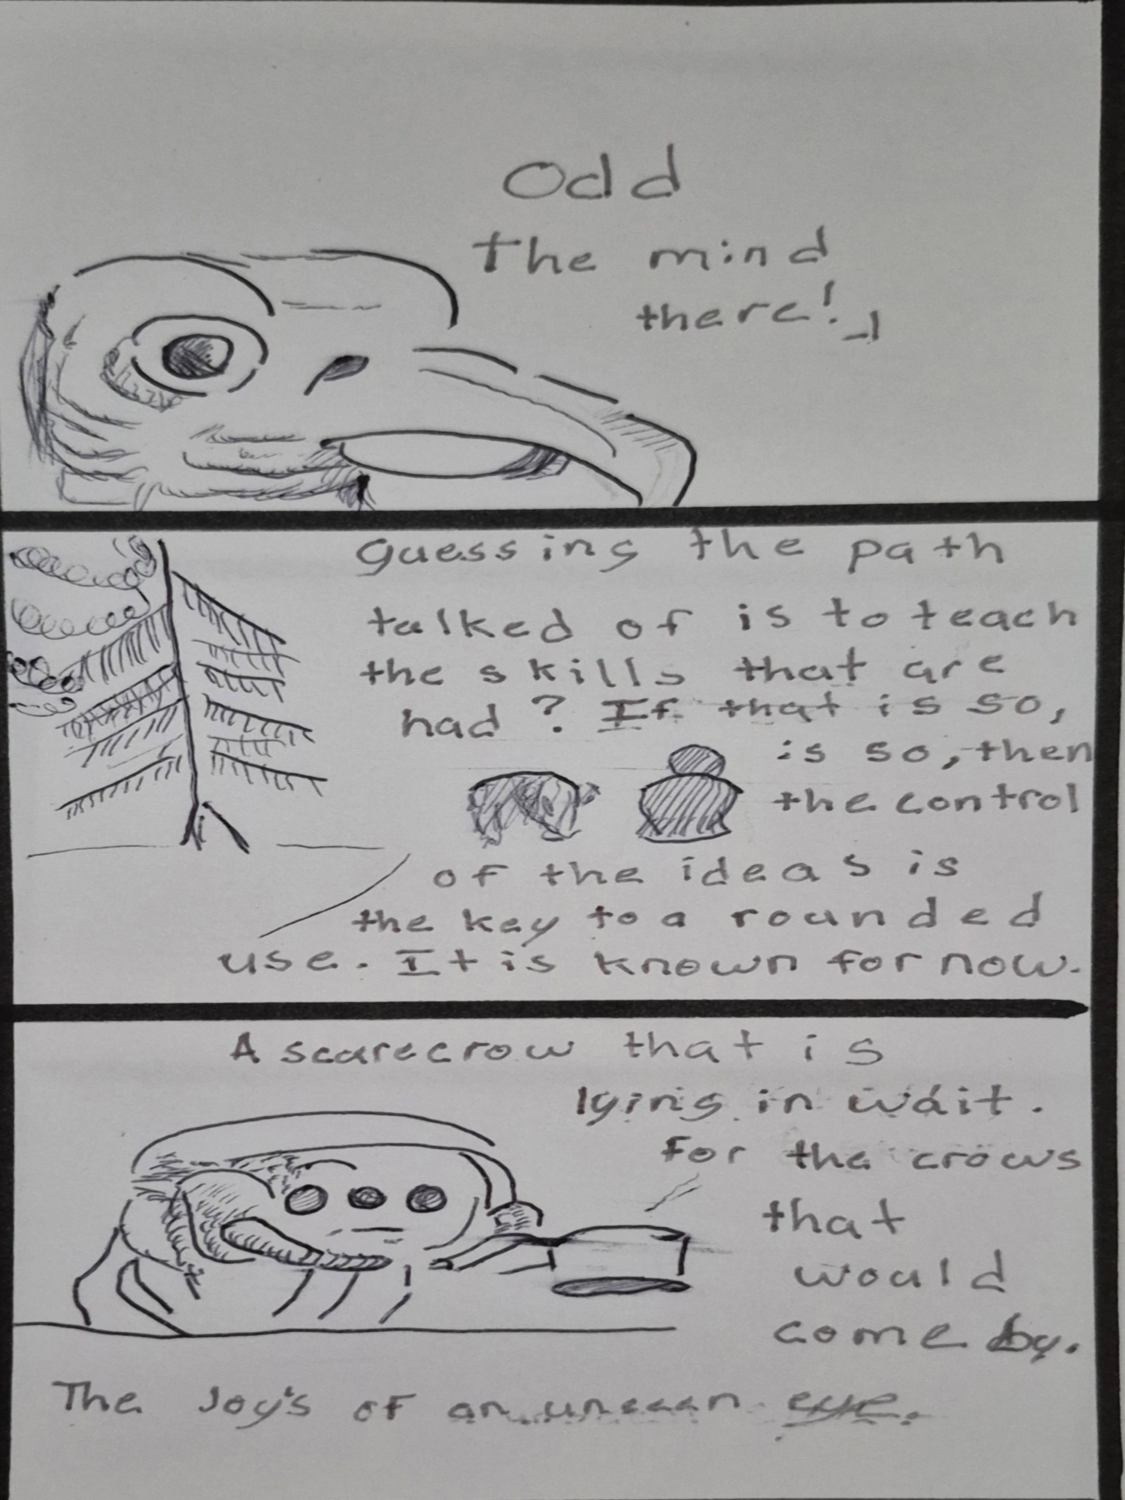 Odd
The mind
there!
Guessing the path
talked of is to teach
the skills that are
had? If that is so,
is so, then
the control
of the ideas is
the key to a rounded
use. It is known for now.
A scarecrow that is
lying in wait.
For the crows
that
would
come by.
The Joy's of an unseen eye.